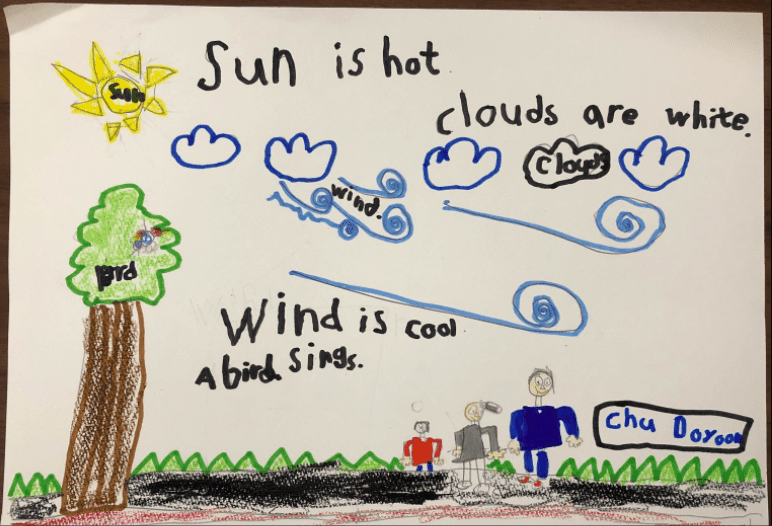 Sun is hot.
Sun
clouds are white.
clouds
wind.
bird
Wind is cool
A bird sings.
Chu Doyoon